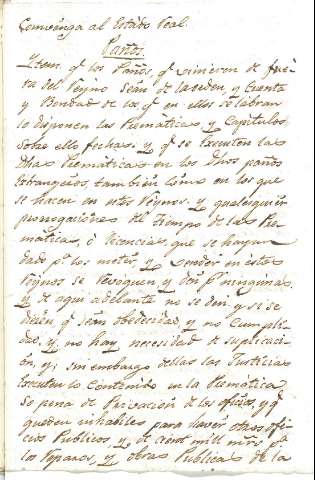 Convenga al Estado Real.
Paños.
Ytem. qe. los Paños, qe. vinieren de fue-
ra del Reyno sean de la orden, y cuenta
y Bondad de los qe. en ellos se labran
lo disponen las Premàticas, y Capitulos
sobre ello fechas: y qe. se executen las
dhas Premàticas en los dhos paños
estrangeros, tambien còmo en los que
se hacen en estos Reynos. y qualesquier
prorrogaciònes del tiempo de las Pre-
màticas, ò licencias, que se hayan
dado pa. los meter, y vender en estos
Reynos se revoquen y den pr. ningunas,
y de aqui adelante no se dèn y si se
dieren, qe. sean obedecidas, y no Cumpli-
das, y, no hay necesidad de suplicaci-
òn, y, sin embargo dellas las Justicias
executen lo contenido en la Premàtica,
so pena de Privaciòn de los oficios, y qe.
queden inhabiles para haver otros ofi-
cios Publicos, y, de cient mill mrs. pa.
los reparos, y obras Publicas de la